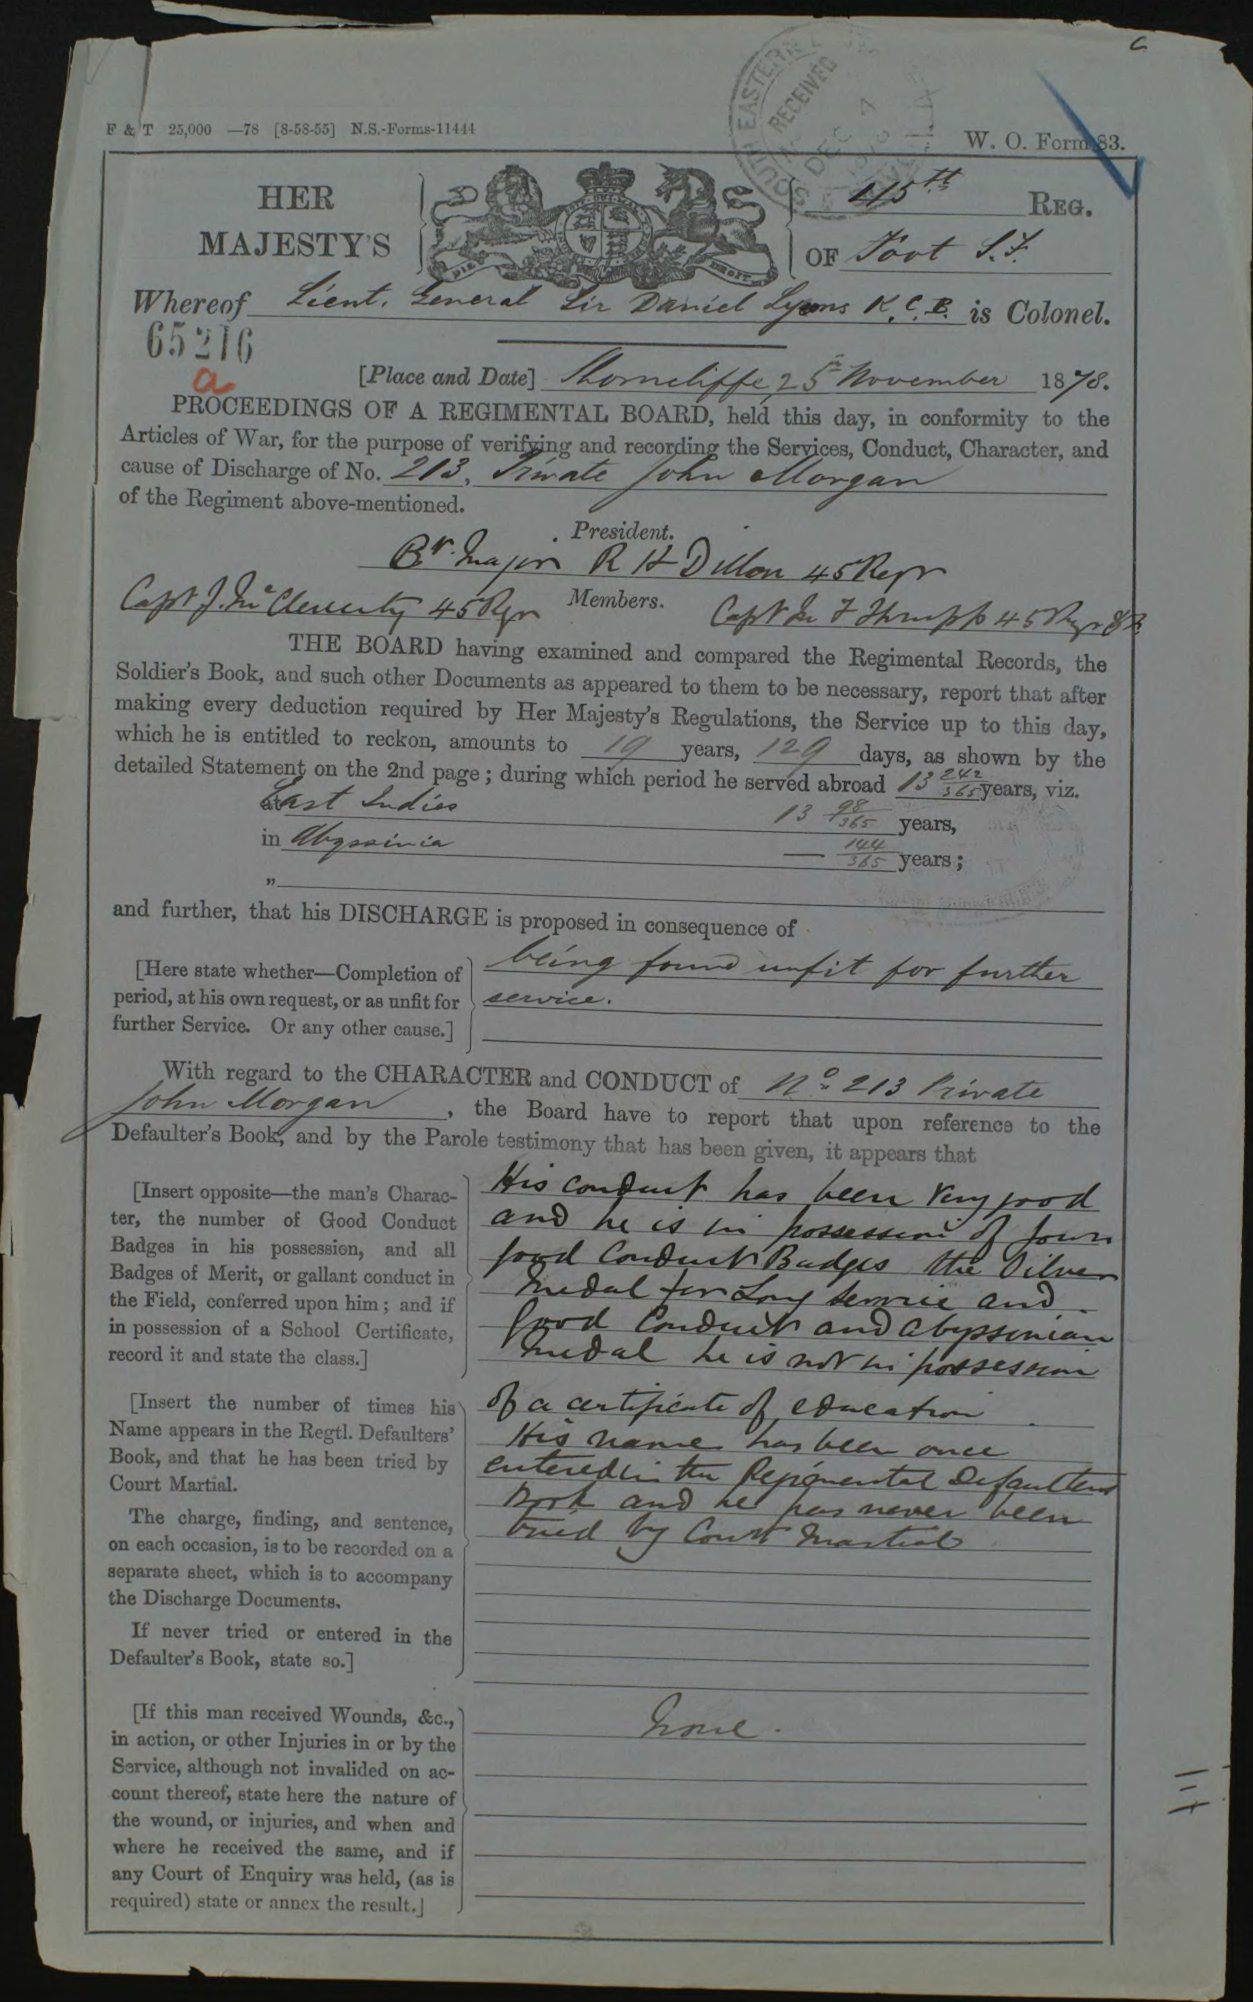 F & T 25,000 —78 [8-58-55] N.S.-Forms-11444
SOUTH EASTERN
RECEIVED
DEC 7
W. O. Form 83.
HER
MAJESTY'S
DIEU
DROIT
45th REG.
OF Foot S.F.
Whereof Lieut. General Sir Daniel Lysons K.C.B. is Colonel.
65216
a
[Place and Date] Shorncliffe, 25th November 1878.
PROCEEDINGS OF A REGIMENTAL BOARD, held this day, in conformity to the
Articles of War, for the purpose of verifying and recording the Services, Conduct, Character, and
cause of Discharge of No. 213, Private John Morgan
of the Regiment above-mentioned.
President.
Bt. Major R H Dillon 45 Regt
Members.
Capt J. McCleverty 45 Regt
Capt 45 Regt
THE BOARD having examined and compared the Regimental Records, the
Soldier's Book, and such other Documents as appeared to them to be necessary, report that after
making every deduction required by Her Majesty's Regulations, the Service up to this day,
which he is entitled to reckon, amounts to 19 years, 129 days, as shown by the
detailed Statement on the 2nd page; during which period he served abroad 13 242/365 years, viz.
East Indies 13 98/365 years,
in Abyssinia — 144/365 years;
"
and further, that his DISCHARGE is proposed in consequence of
[Here state whether—Completion of
period, at his own request, or as unfit for
further Service. Or any other cause.]
being found unfit for further
service.
With regard to the CHARACTER and CONDUCT of No. 213 Private
John Morgan, the Board have to report that upon reference to the
Defaulter's Book, and by the Parole testimony that has been given, it appears that
[Insert opposite—the man's Charac-
ter, the number of Good Conduct
Badges in his possession, and all
Badges of Merit, or gallant conduct in
the Field, conferred upon him; and if
in possession of a School Certificate,
record it and state the class.]
His conduct has been very good
and he is in possession of four
good Conduct Badges the Silver
medal for Long service and
good Conduct and Abyssinian
medal he is not in possession
of a certificate of education
His name has been once
entered in the Regimental Defaulters
Book and he has never been
tried by Court Martial
[Insert the number of times his
Name appears in the Regtl. Defaulters'
Book, and that he has been tried by
Court Martial.
The charge, finding, and sentence,
on each occasion, is to be recorded on a
separate sheet, which is to accompany
the Discharge Documents.
If never tried or entered in the
Defaulter's Book, state so.]
[If this man received Wounds, &c.,
in action, or other Injuries in or by the
Service, although not invalided on ac-
count thereof, state here the nature of
the wound, or injuries, and when and
where he received the same, and if
any Court of Enquiry was held, (as is
required) state or annex the result.]
None.